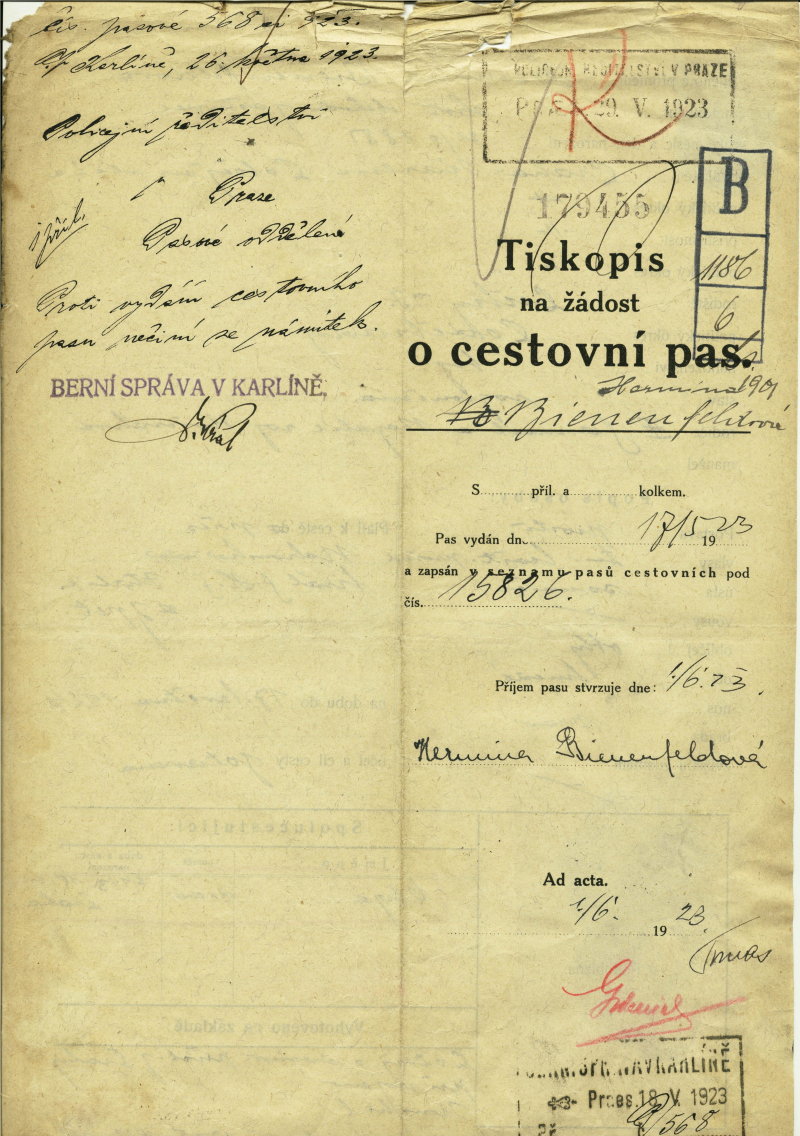 čís. pasové 568 ai 923.
V Karlíně, 26. května 1923.
Policejní ředitelství
v Praze
Pasové oddělené
1 příl.
Proti vydání cestovního
pasu nečiní se námitek.
BERNÍ SPRÁVA V KARLÍNĚ,
POLICEJNÍ ŘEDITELSTVÍ V PRAZE
29. V. 1923
179455
B
1186
6
Tiskopis
na žádost
o cestovní pas.
Hermina 1901
Bienenfeldová
S příl. a kolkem.
Pas vydán dne 17/5 1923
a zapsán v seznamu pasů cestovních pod
čís. 15826.
Příjem pasu stvrzuje dne: 1/6. 23.
Hermina Bienenfeldová
Ad acta.
1/6. 1923.
BERNÍ SPRÁVA V KARLÍNĚ
Praes. 18. V. 1923
568